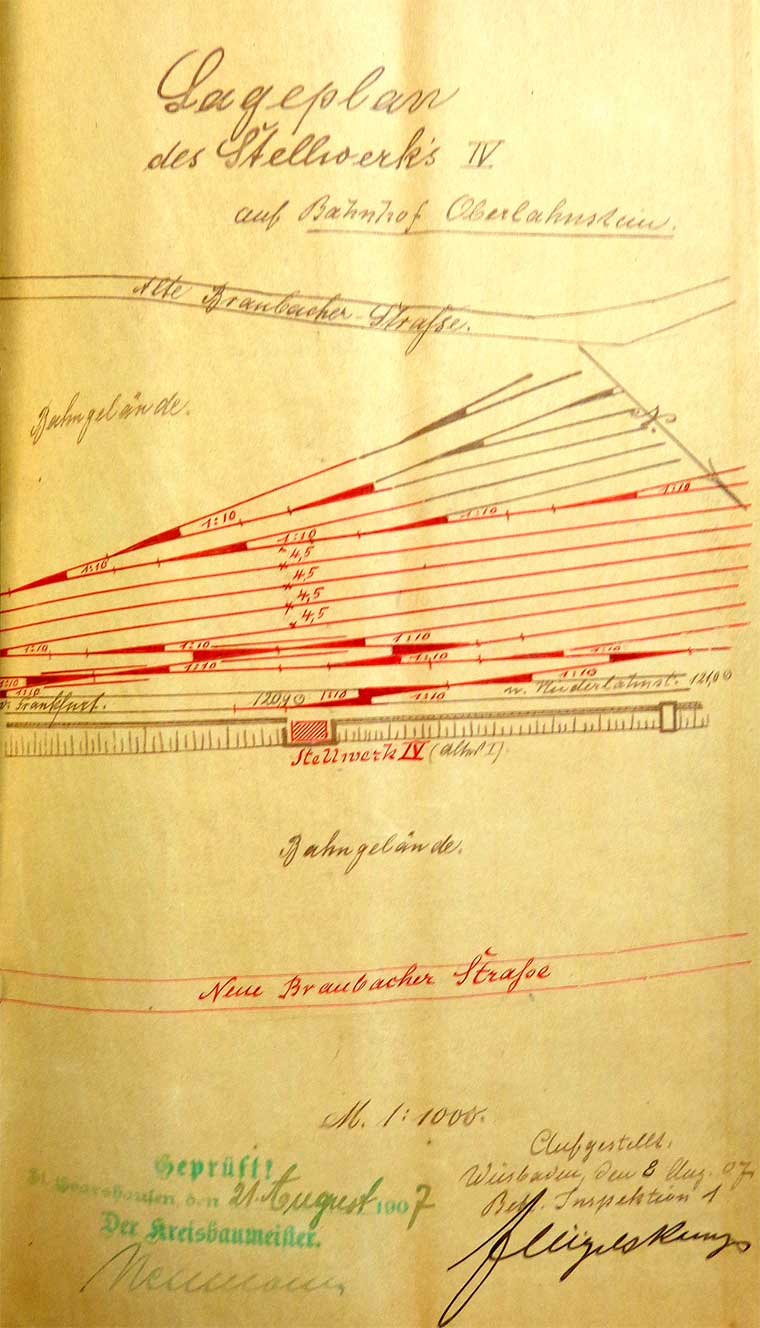 Lageplan
des Stellwerk's IV
auf Bahnhof Oberlahnstein.
Alte Braubacher-Straße.
Bahngelände.
N.
1:10
1:10
1:10
1:10
1:10
1:10
4,5
4,5
4,5
4,5
1:10
1:10
1:10
1:10
1:10
1:10
1:10
1:10
1:10
v. Frankfurt.
120,9
1:10
1:10
n. Niederlahnst.
121,0
Stellwerk IV
Bahngelände.
Neue Braubacher Straße
M. 1:1000.
Aufgestellt.
Wiesbaden, den 8 Aug. 07.
Betr. Inspektion 1
Geprüft!
St. Goarshausen, den 21. August 1907
Der Kreisbaumeister.